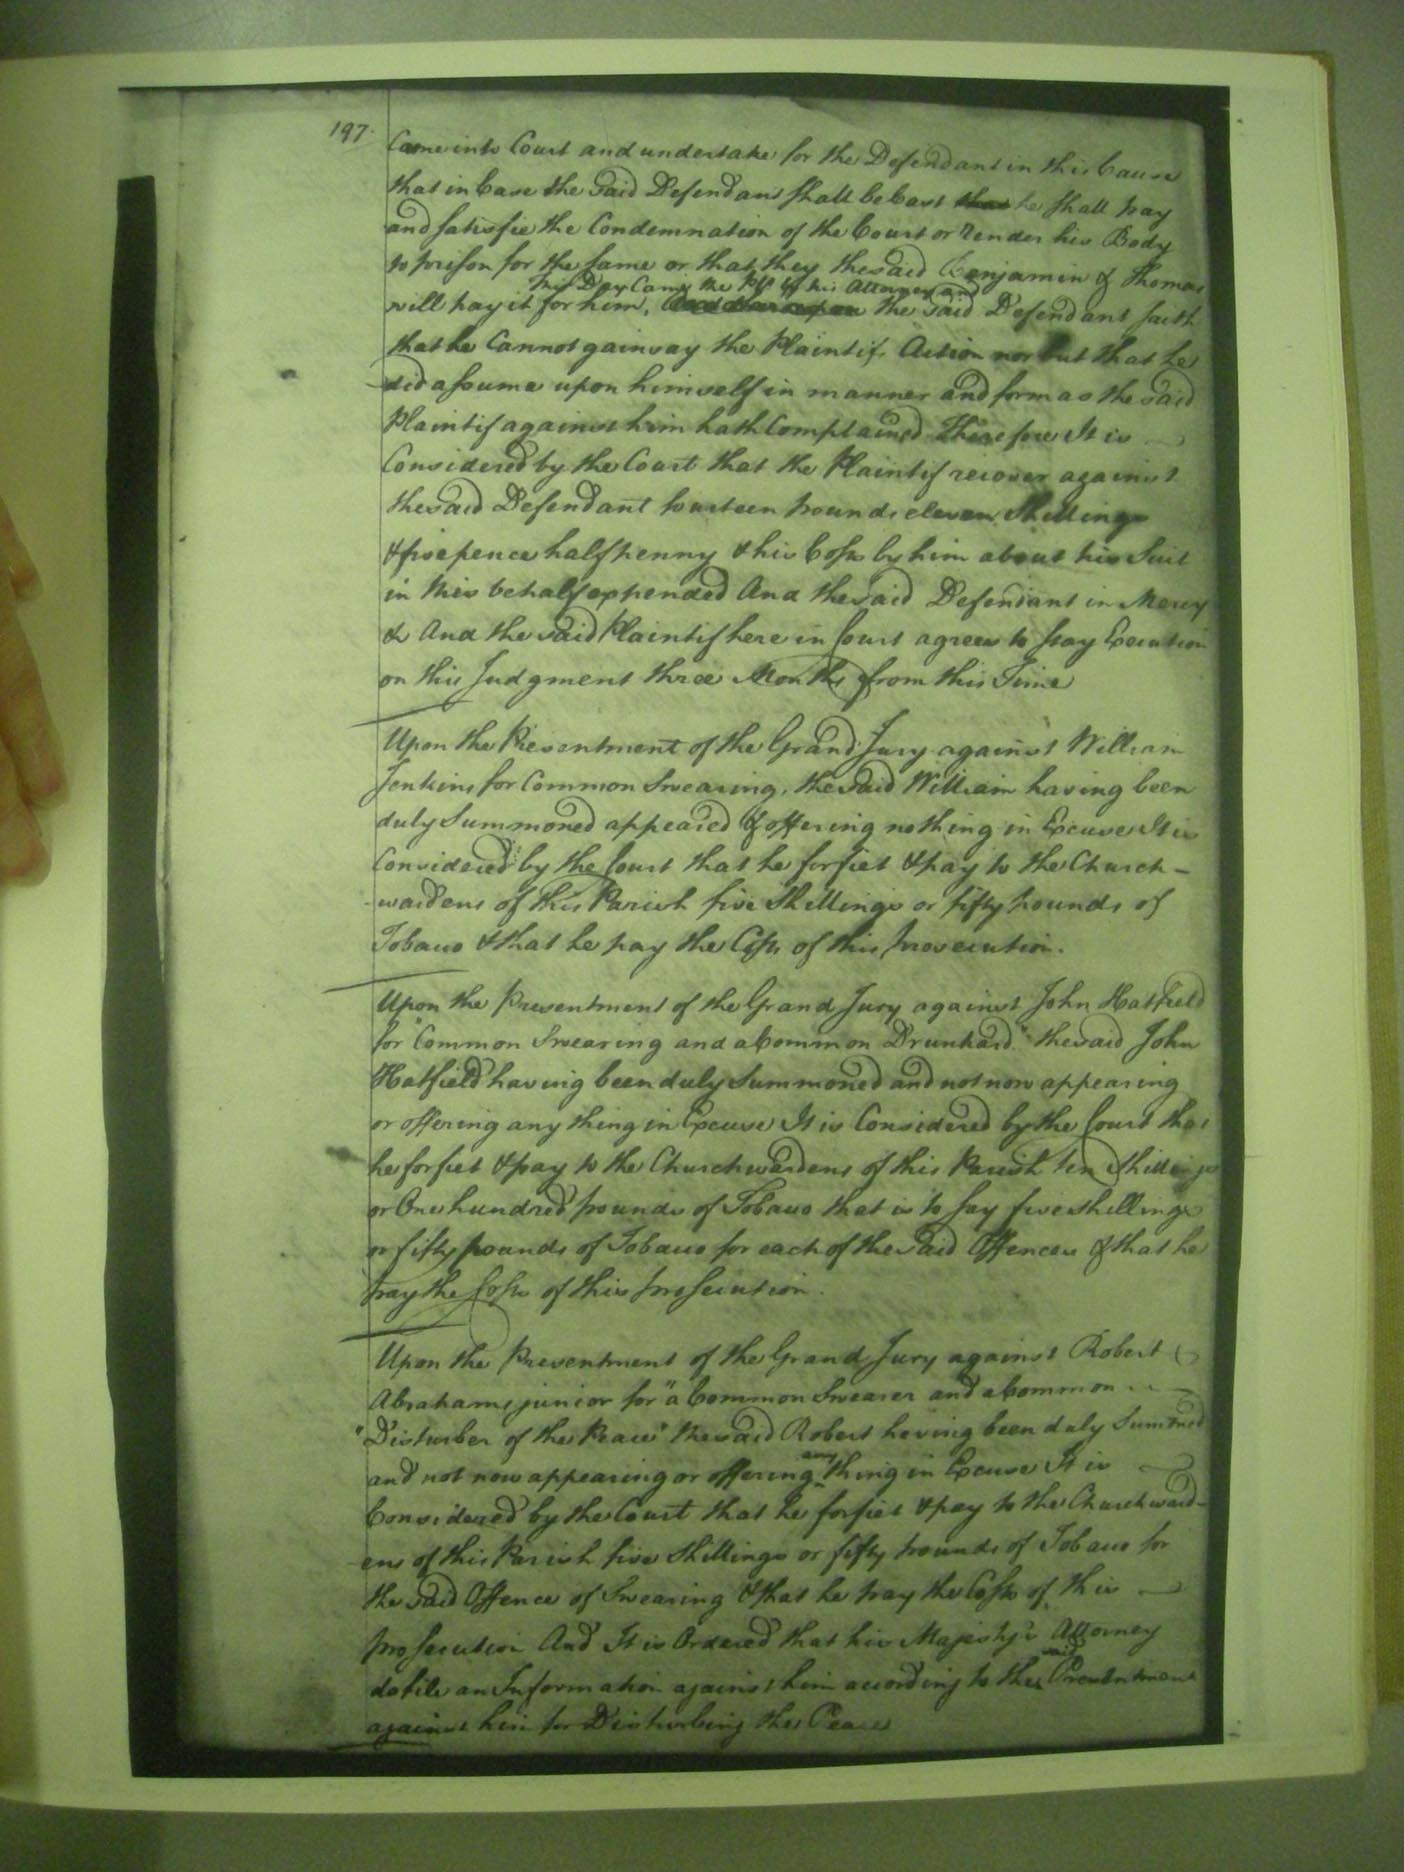 197.
Came into Court and undertake for the Defendant in this Cause
that in Case the said Defendant shall be Cast that he shall pay
and satisfie the Condemnation of the Court or render his Body
to prison for the same or that they the said Benjamin & Thomas
this Day Came the Plt by his Attorney and
will pay it for him, the said Defendant saith
that he Cannot gainsay the Plaintifs Action nor but that he
did assume upon himself in manner and form as the said
Plaintif against him hath Complained Therefore It is
Considered by the Court that the Plaintif recover against
the said Defendant fourteen pounds eleven Shillings
& fivepence halfpenny & his Costs by him about his Suit
in this behalf expended And the said Defendant in Mercy
& And the said Plaintif here in Court agrees to stay Execution
on this Judgment three Months from this Time
Upon the Presentment of the Grand Jury against William
Jenkins for Common Swearing, the said William having been
duly Summoned appeared & offering nothing in Excuse It is
Considered by the Court that he forfiet & pay to the Church-
-wardens of this Parish five Shillings or fifty pounds of
Tobacco & that he pay the Costs of this prosecution.
Upon the Presentment of the Grand Jury against John Hatfield
for "Common Swearing and a Common Drunkard" the said John
Hatfield having been duly Summoned and not now appearing
or offering any thing in Excuse It is Considered by the Court that
he forfiet & pay to the Churchwardens of this Parish ten Shillings
or One hundred pounds of Tobacco that is to say five shillings
or fifty pounds of Tobacco for each of the said Offences & that he
pay the Costs of this prosecution.
Upon the Presentment of the Grand Jury against Robert
Abrahams junior for "a Common Swearer and a Common
"Disturber of the Peace" the said Robert having been duly Summoned
and not now appearing or offering any thing in Excuse It is
Considered by the Court that he forfiet & pay to the Churchward-
ens of this Parish five Shillings or fifty pounds of Tobacco for
the said Offence of Swearing & that he pay the Costs of this
prosecution And It is Ordered that his Majesty's Attorney
do file an Information against him according to the said Presentment
against him for Disturbing the Peace